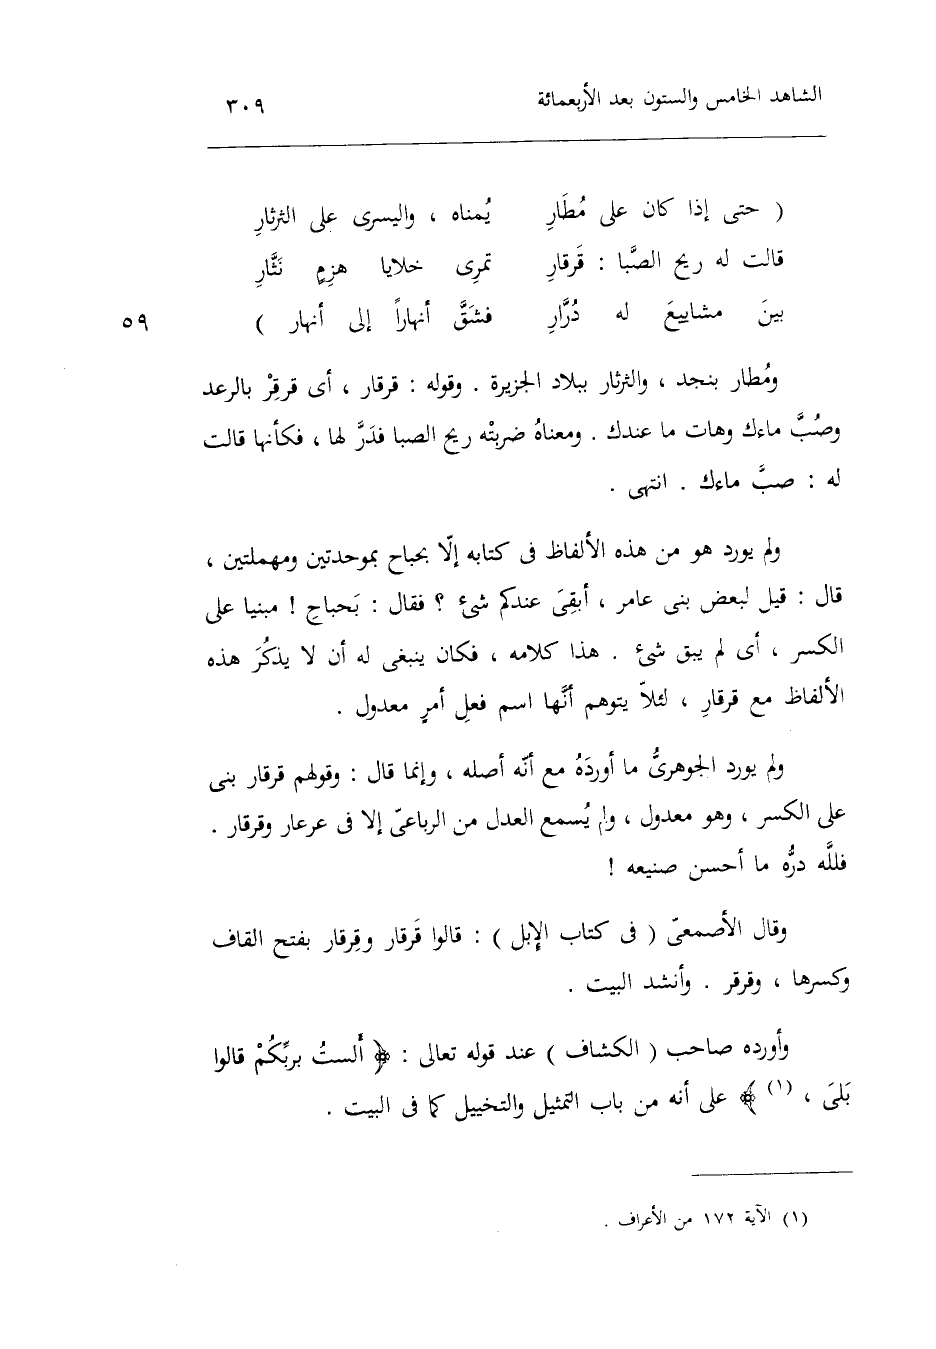 الشاهد الخامس والستون بعد الأربعمائة ٣٠٩
( حتى إذا كان على مُطَارِ يُمناه ، واليسرى على الثرثارِ
قالت له ريح الصَّبا : قَرقارِ تمرِى خلايا هزِمٍ نَثَّارِ
بينَ مشاييعَ له دُرَّارِ فشَقَّ أنهاراً إلى أنهار ) ٥٩
ومُطار بنجد ، والثرثار ببلاد الجزيرة . وقوله : قرقار ، أى قرقِرْ بالرعد
وصُبَّ ماءك وهات ما عندك . ومعناهُ ضربتْه ريح الصبا فدَرَّ لها ، فكأنها قالت
له : صبَّ ماءك . انتهى .
ولم يورد هو من هذه الألفاظ فى كتابه إلّا بحباح بموحدتين ومهملتين ،
قال : قيل لبعض بنى عامر ، أبقِىَ عندكم شئ ؟ فقال : بَحباحِ ! مبنيا على
الكسر ، أى لم يبق شئ . هذا كلامه ، فكان ينبغى له أن لا يذكُرَ هذه
الألفاظ مع قرقارِ ، لئلاّ يتوهم أنَّها اسم فعلِ أمرٍ معدول .
ولم يورد الجوهرىُّ ما أوردَهُ مع أنّه أصله ، وإنما قال : وقولهم قرقار بنى
على الكسر ، وهو معدول ، ولم يُسمع العدل من الرباعىّ إلا فى عرعار وقرقار .
فللَّه درُّه ما أحسن صنيعه !
وقال الأصمعىّ ( فى كتاب الإبل ) : قالوا قَرقار وقِرقار بفتح القاف
وكسرها ، وقرقر . وأنشد البيت .
وأورده صاحب ( الكشاف ) عند قوله تعالى : ﴿ أَلستُ بربِّكُمْ قالوا
بَلىَ ، (١) ﴾ على أنه من باب التمثيل والتخييل كما فى البيت .
(١) الآية ١٧٢ من الأعراف .